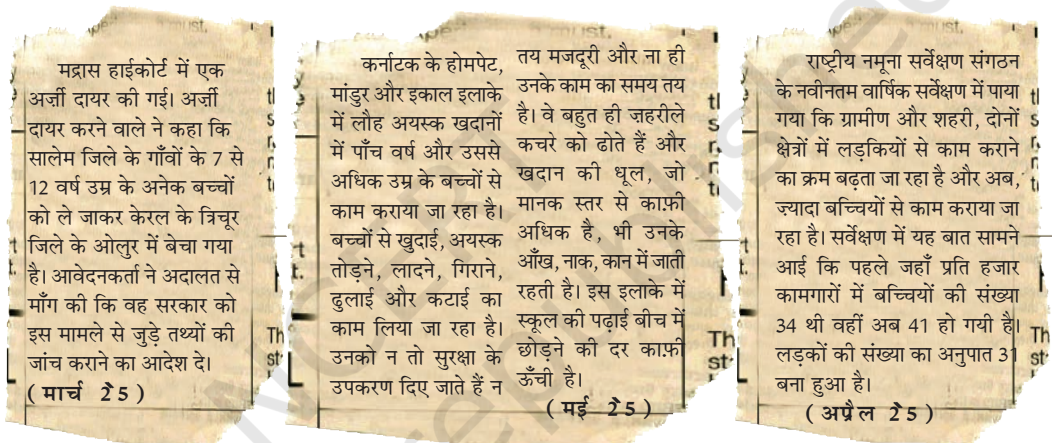 मद्रास हाईकोर्ट में एक
अर्ज़ी दायर की गई। अर्ज़ी
दायर करने वाले ने कहा कि
सालेम जिले के गाँवों के 7 से
12 वर्ष उम्र के अनेक बच्चों
को ले जाकर केरल के त्रिचूर
जिले के ओलुर में बेचा गया
है। आवेदनकर्ता ने अदालत से
माँग की कि वह सरकार को
इस मामले से जुड़े तथ्यों की
जांच कराने का आदेश दे।
( मार्च 25 )
कर्नाटक के होमपेट,
मांडुर और इकाल इलाके
में लौह अयस्क खदानों
में पाँच वर्ष और उससे
अधिक उम्र के बच्चों से
काम कराया जा रहा है।
बच्चों से खुदाई, अयस्क
तोड़ने, लादने, गिराने,
ढुलाई और कटाई का
काम लिया जा रहा है।
उनको न तो सुरक्षा के
उपकरण दिए जाते हैं न
तय मजदूरी और ना ही
उनके काम का समय तय
है। वे बहुत ही जहरीले
कचरे को ढोते हैं और
खदान की धूल, जो
मानक स्तर से काफ़ी
अधिक है, भी उनके
आँख, नाक, कान में जाती
रहती है। इस इलाके में
स्कूल की पढ़ाई बीच में
छोड़ने की दर काफ़ी
ऊँची है।
( मई 25 )
राष्ट्रीय नमूना सर्वेक्षण संगठन
के नवीनतम वार्षिक सर्वेक्षण में पाया
गया कि ग्रामीण और शहरी, दोनों
क्षेत्रों में लड़कियों से काम कराने
का क्रम बढ़ता जा रहा है और अब,
ज्यादा बच्चियों से काम कराया जा
रहा है। सर्वेक्षण में यह बात सामने
आई कि पहले जहाँ प्रति हजार
कामगारों में बच्चियों की संख्या
34 थी वहीं अब 41 हो गयी है।
लड़कों की संख्या का अनुपात 31
बना हुआ है।
( अप्रैल 25 )